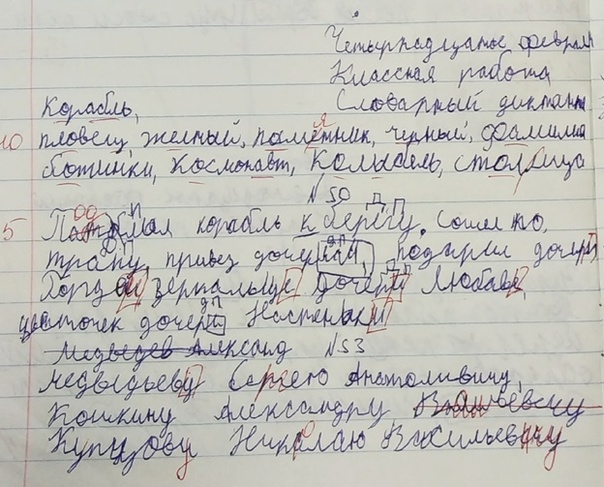 Четырнадцатое февраля
Классная работа
Словарный диктант
Корабль,
пловец, желтый, памятник, черный, фамилия
ботинки, космонавт, колыбель, столица
N 50
корабль к берегу. Сошел по
трапу, привез дочерям, подарил дочери
зеркальце дочери Любаве,
цветочек дочери Настеньки
Медведев Александ N 53
Медведьеву Сергею Анатоливичу,
Кошкину Александру
Купцову Николаю Васильевичу